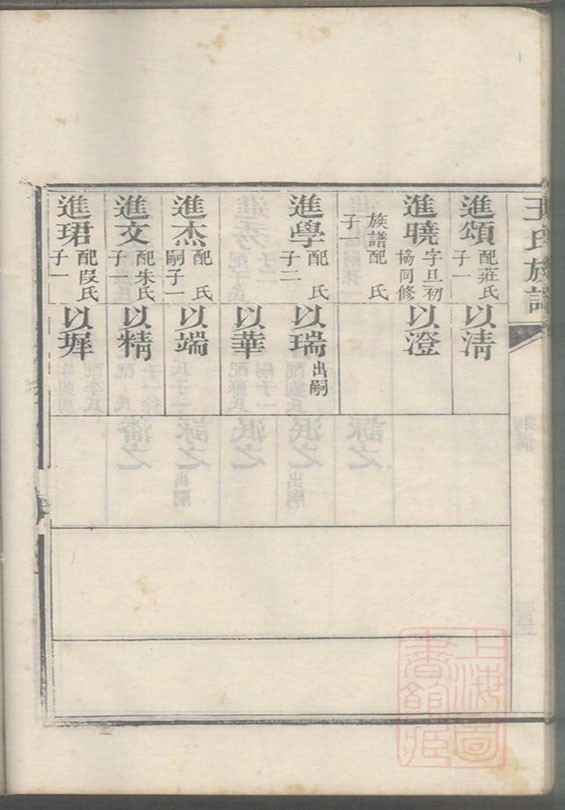 王氏族譜
進頌 配莊氏 子一
進曉 字旦初 協同修
族譜配 氏 子一
進學 配 氏 子二
進杰 配 氏 嗣子一
進文 配朱氏 子一
進珺 配段氏 子一
以清
以澄
以瑞 出嗣
以華
以端
以精
以墀
上海圖書館藏